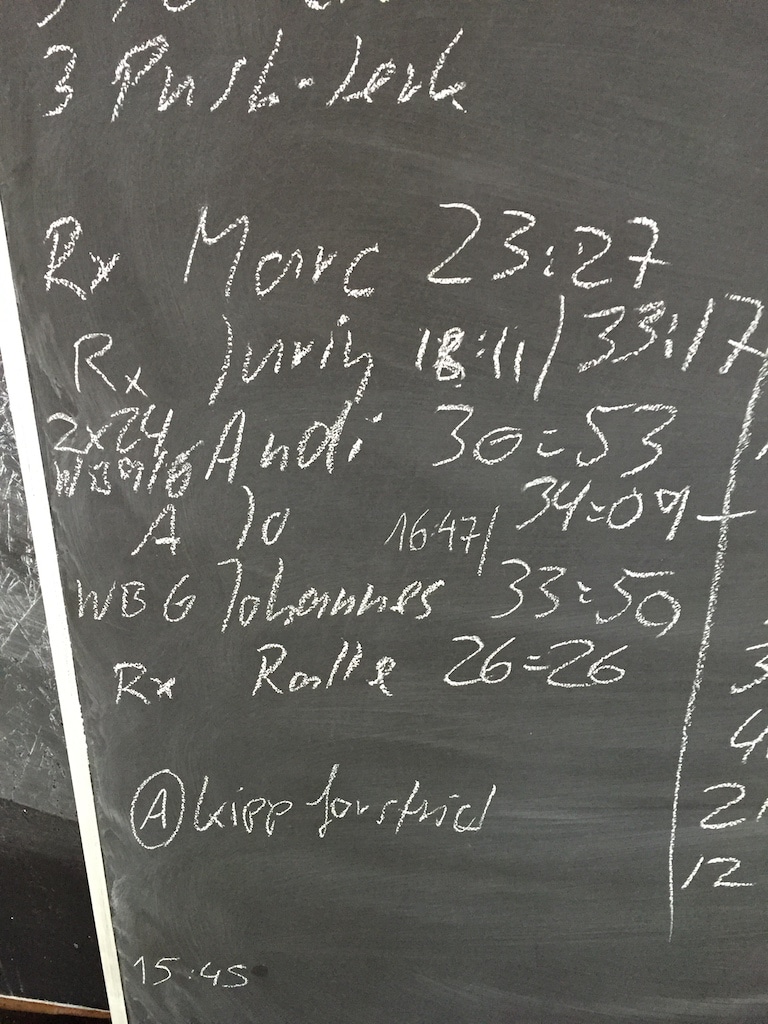 3 Push-Jerk
Rx Marc 23:27
Rx 18:11/ 33:17
2x24 Andi 30:53
A Jo 16:47/ 34:09
WBG Johannes 33:50
Rx Ralle 26:26
A kipp for strict
15:45
2
12